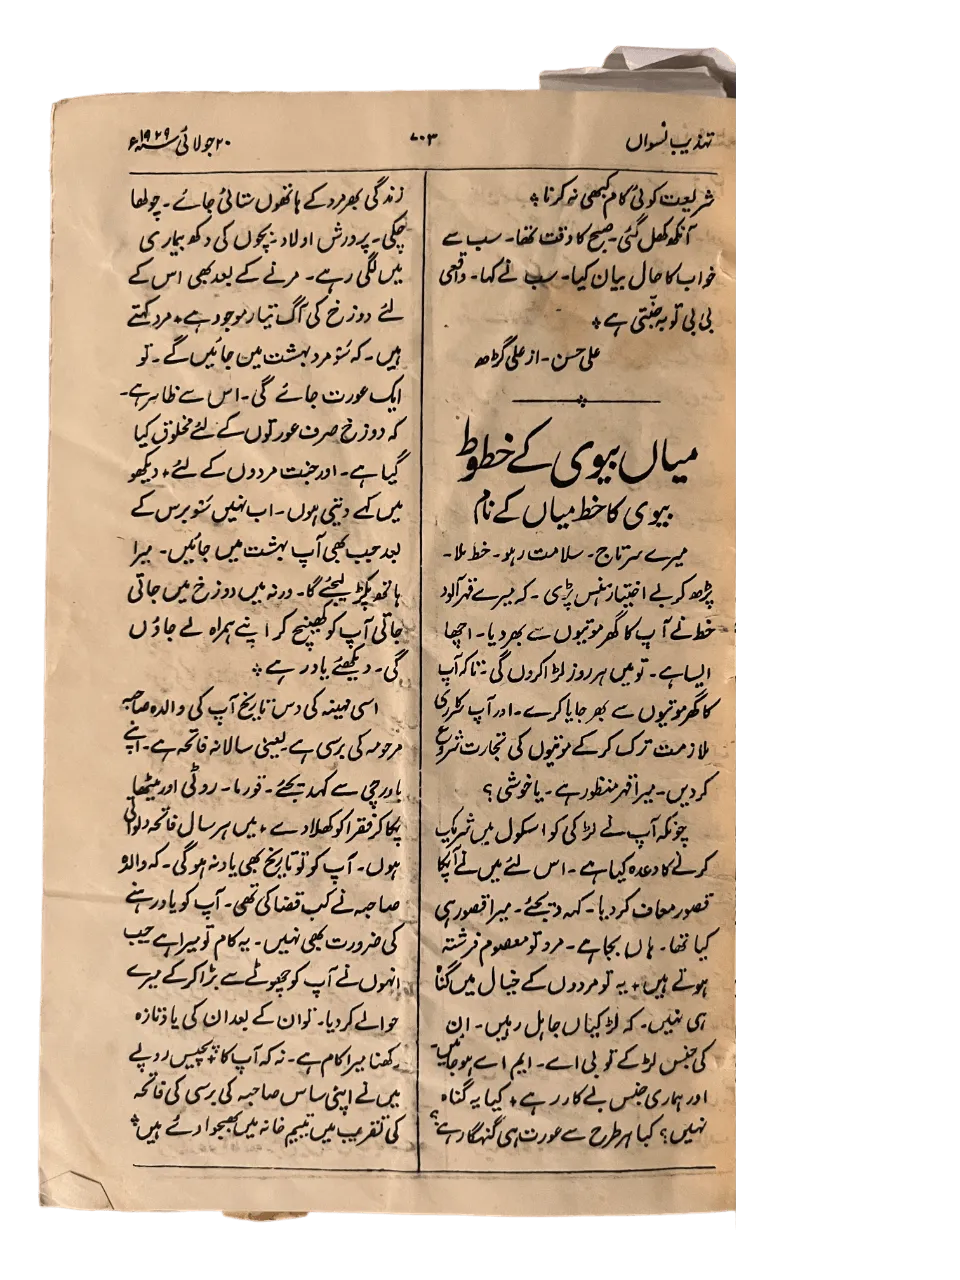 تہذیب نسواں
۷۰۳
۲۰ جولائی سنہ ۱۹۲۹ء
شریعت کوئی کام کبھی نہ کرنا +
آنکھ کھل گئی۔ صبح کا وقت تھا۔ سب سے
خواب کا حال بیان کیا۔ سب نے کہا۔ واقعی
بی بی تو یہ جنتی ہے +
علی حسن۔ از علی گڑھ
میاں بیوی کے خطوط
بیوی کا خط میاں کے نام
میرے سرتاج۔ سلامت رہو۔ خط ملا۔
پڑھ کر بے اختیار ہنس پڑی۔ کہ میرے قہر آلود
خط نے آپ کا گھر موتیوں سے بھر دیا۔ اچھا
ایسا ہے۔ تو میں ہر روز لڑا کروں گی۔ تاکہ آپ
کا گھر موتیوں سے بھر جایا کرے۔ اور آپ نوکری
ملازمت ترک کر کے موتیوں کی تجارت شروع
کر دیں۔ میرا قہر منظور ہے۔ یا خوشی؟
چونکہ آپ نے لڑکی کو اسکول میں شریک
کرنے کا وعدہ کیا ہے۔ اس لئے میں نے آپکا
قصور معاف کر دیا۔ کہہ دیجئے۔ میرا قصور ہی
کیا تھا۔ ہاں بجا ہے۔ مرد تو معصوم فرشتہ
ہوتے ہیں + یہ تو مردوں کے خیال میں گناہ
ہی نہیں۔ کہ لڑکیاں جاہل رہیں۔ ان
کی جنس لڑکے تو بی اے۔ ایم اے ہو جائیں۔
اور ہماری جنس بے کار رہے + کیا یہ گناہ
نہیں؟ کیا ہر طرح سے عورت ہی گنہگار ہے؟
زندگی بھر مرد کے ہاتھوں ستائی جائے۔ چولھا
چکی۔ پرورش اولاد۔ بچوں کی دکھ بیماری
میں لگی رہے۔ مرنے کے بعد بھی اس کے
لئے دوزخ کی آگ تیار موجود ہے + مرد کہتے
ہیں۔ کہ سَو مرد بہشت میں جائیں گے۔ تو
ایک عورت جائے گی۔ اس سے ظاہر ہے۔
کہ دوزخ صرف عورتوں کے لئے مخلوق کیا
گیا ہے۔ اور جنت مردوں کے لئے + دیکھو
میں کہے دیتی ہوں۔ اب نہیں سَو برس کے
بعد جب بھی آپ بہشت میں جائیں۔ میرا
ہاتھ پکڑ لیجئے گا۔ ورنہ میں دوزخ میں جاتی
جاتی آپ کو کھینچ کر اپنے ہمراہ لے جاؤں
گی۔ دیکھئے یاد رہے +
اسی مہینہ کی دس تاریخ آپ کی والدہ صاحبہ
مرحومہ کی برسی ہے یعنی سالانہ فاتحہ ہے۔ اپنے
باورچی سے کہہ دیجئے۔ قورما۔ روٹی اور میٹھا
پکا کر فقرا کو کھلا دے + میں ہر سال فاتحہ دلواتی
ہوں۔ آپ کو تو تاریخ بھی یاد نہ ہو گی۔ کہ والدہ
صاحبہ نے کب قضا کی تھی۔ آپ کو یاد رہنے
کی ضرورت بھی نہیں۔ یہ کام تو میرا ہے جب
انہوں نے آپ کو چھوٹے سے بڑا کر کے میرے
حوالے کر دیا۔ تو ان کے بعد ان کی یاد تازہ
رکھنا میرا کام ہے۔ نہ کہ آپ کا + پچیس روپے
میں نے اپنی ساس صاحبہ کی برسی کی فاتحہ
کی تقریب میں یتیم خانہ میں بھجوا دئے ہیں +